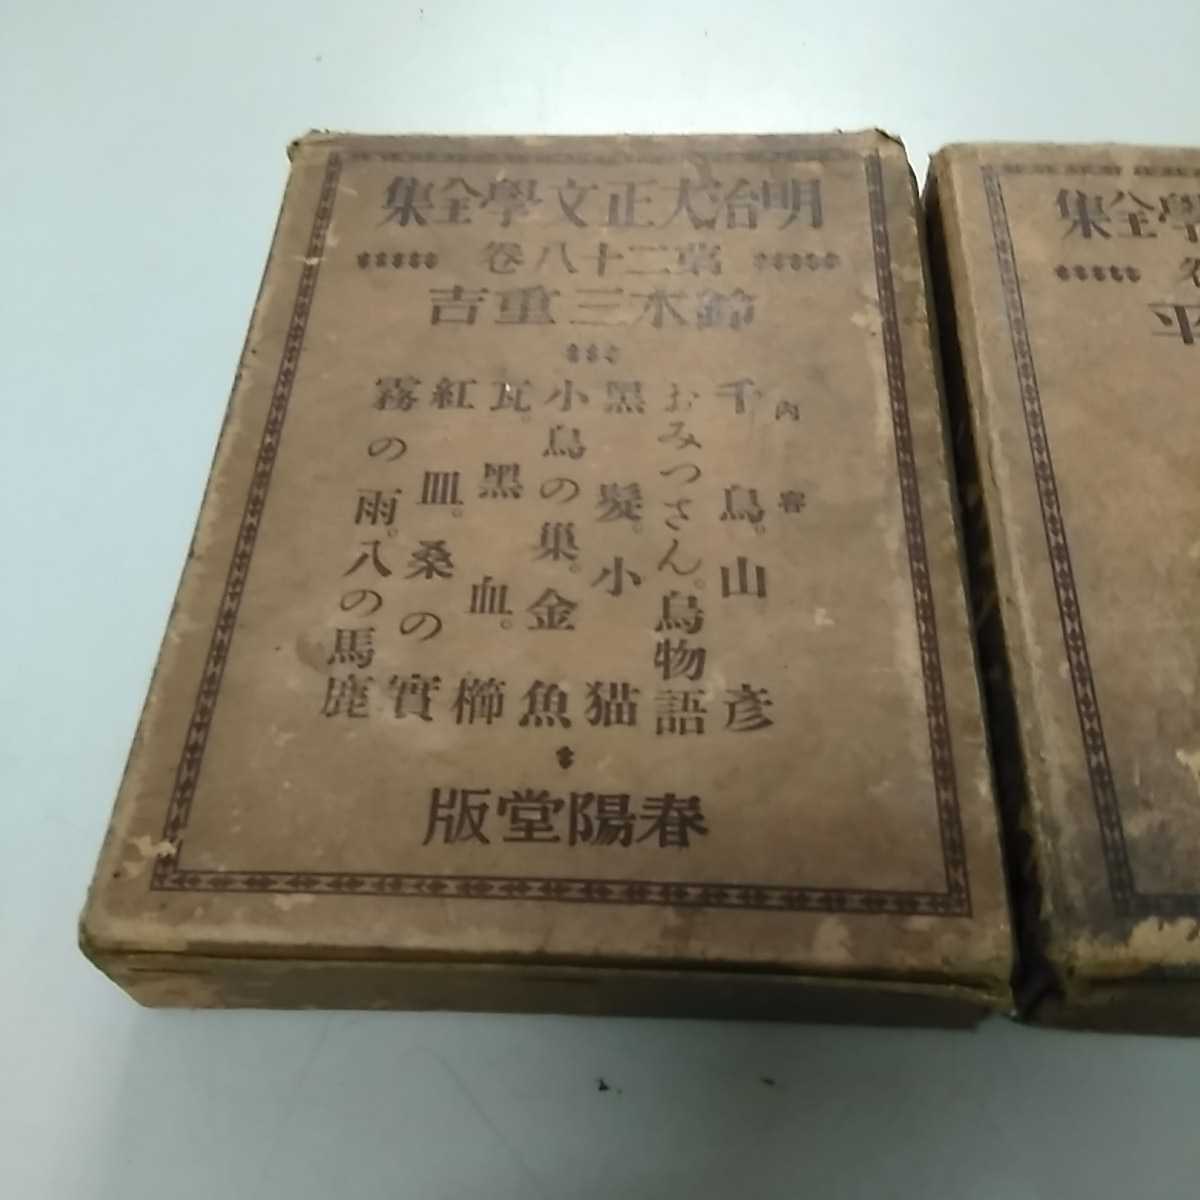 集全學文正大治明
卷八十二第
吉重三木鈴
內容
千鳥。山彦
おみつさん。鳥物語
黑髮。小猫
小鳥の巢。金魚
瓦。黑血。櫛
紅皿。桑の實
霧の雨。八の馬鹿
版堂陽春
集全學
卷
平